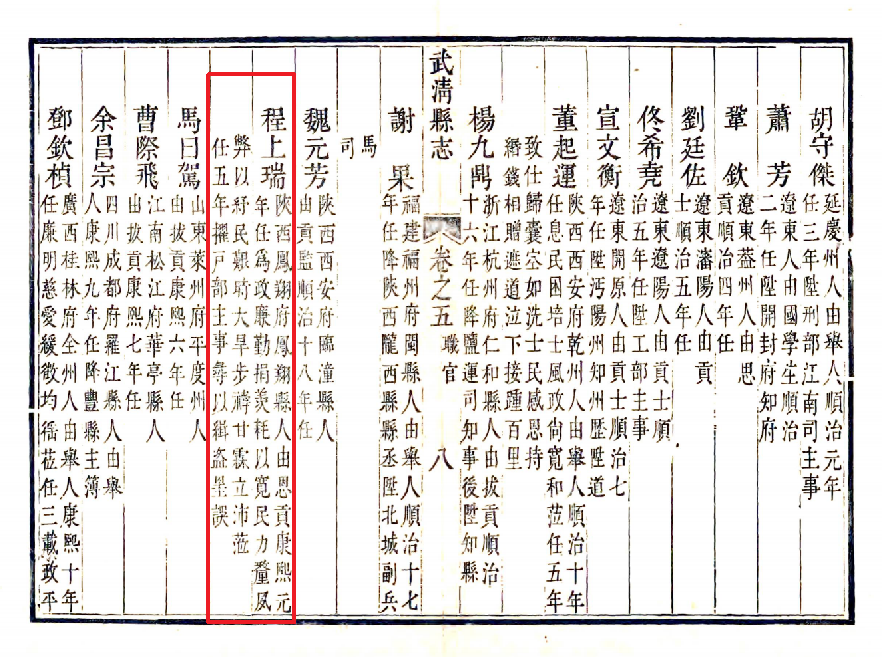 胡守傑
延慶州人由舉人順治元年
任三年陞刑部江南司主事
蕭芳
遼東人由國學生順治
二年任陞開封府知府
鞏欽
遼東蓋州人由恩
貢順治四年任
劉廷佐
遼東瀋陽人由貢
士順治五年任
佟希堯
遼東遼陽人由貢士順
治五年任陞工部主事
宣文衡
遼東開原人由貢士順治七
年任陞沔陽州知州歷陞道
董起運
陝西西安府乾州人由舉人順治十年
任息民困培士風政尚寬和蒞任五年
致仕歸囊空如洗士民感思持
緡錢相贈遮道泣下接踵百里
楊九
浙江杭州府仁和縣人由拔貢順治
十六年任降鹽運司知事後陞知縣
武清縣志
卷之五
職官
八
謝杲
福建福州府閩縣人由舉人順治十七
年任降陝西隴西縣縣丞陞北城副兵
馬
司
魏元芳
陝西西安府臨潼縣人
由貢監順治十八年任
程上瑞
陝西鳳翔府鳳翔縣人由恩貢康熙元
年任為政廉勤捐羨耗以寬民力釐夙
弊以紓民艱時大旱步禱甘霖立沛蒞
任五年擢戶部主事尋以緝盜罣誤
馬日駕
山東萊州府平度州人
由拔貢康熙六年任
曹際飛
江南松江府華亭縣人
由拔貢康熙七年任
余昌宗
四川成都府羅江縣人由舉
人康熙九年任降豐縣主簿
鄧欽楨
廣西桂林府全州人由舉人康熙十年
任廉明慈愛緩徵均徭蒞任三載政平